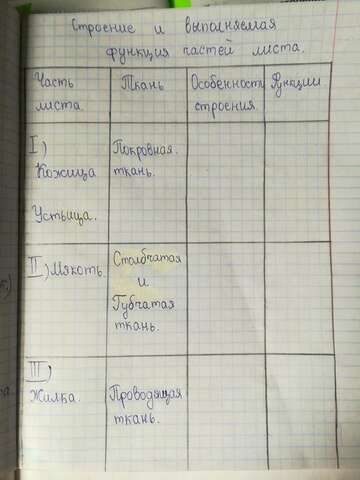 Строение и выполняемая
функция частей листа.
Часть Ткань Особенности Функции.
листа. строения.
I) Покровная
Кожица ткань.
Устьица.
II) Мякоть. Столбчатая
и
Губчатая
ткань.
III)
Жилка. Проводящая
ткань.